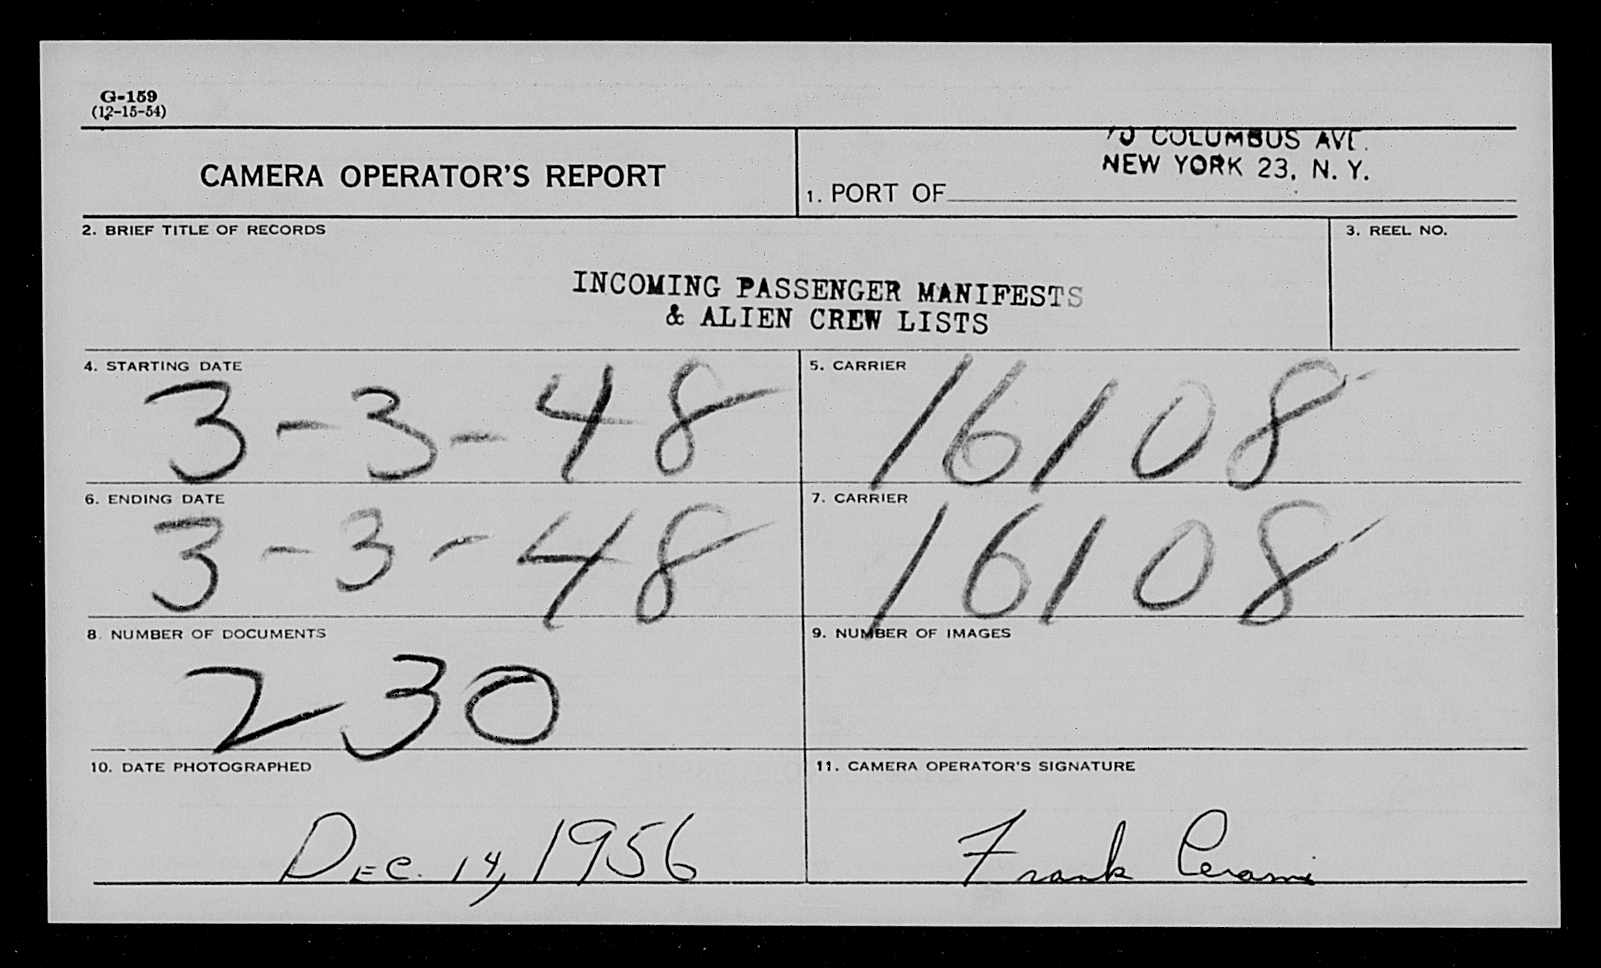 G-159
(12-15-54)
CAMERA OPERATOR'S REPORT
70 COLUMBUS AVE.
NEW YORK 23, N. Y.
1. PORT OF
2. BRIEF TITLE OF RECORDS
3. REEL NO.
INCOMING PASSENGER MANIFESTS
& ALIEN CREW LISTS
4. STARTING DATE
3-3-48
5. CARRIER
16108
6. ENDING DATE
3-3-48
7. CARRIER
16108
8. NUMBER OF DOCUMENTS
230
9. NUMBER OF IMAGES
10. DATE PHOTOGRAPHED
Dec. 14, 1956
11. CAMERA OPERATOR'S SIGNATURE
Frank Cerami